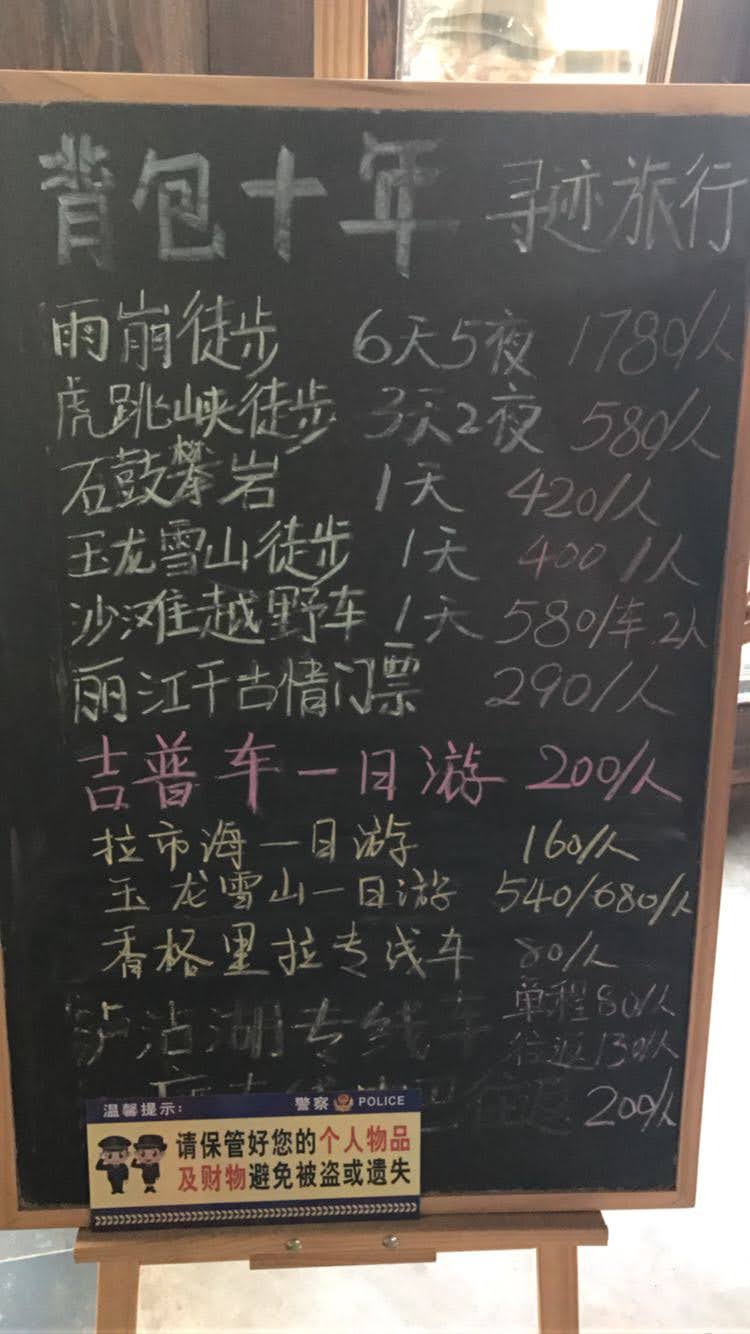 背包十年 寻迹旅行
雨崩徒步 6天5夜 1780/人
虎跳峡徒步 3天2夜 580/人
石鼓攀岩 1天 420/人
玉龙雪山徒步 1天 400/人
沙滩越野车 1天 580/车 2人
丽江千古情门票 290/人
吉普车一日游 200/人
拉市海一日游 160/人
玉龙雪山一日游 540/680/人
香格里拉专线车 80/人
泸沽湖专线车 单程80/人
往返130/人
200/人
温馨提示： 警察 POLICE
请保管好您的个人物品
及财物避免被盗或遗失